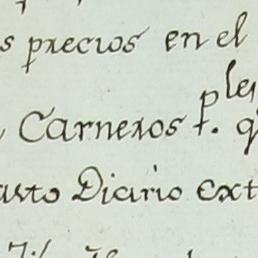 s precios en el
Carneros p.les q
asto Diario ext